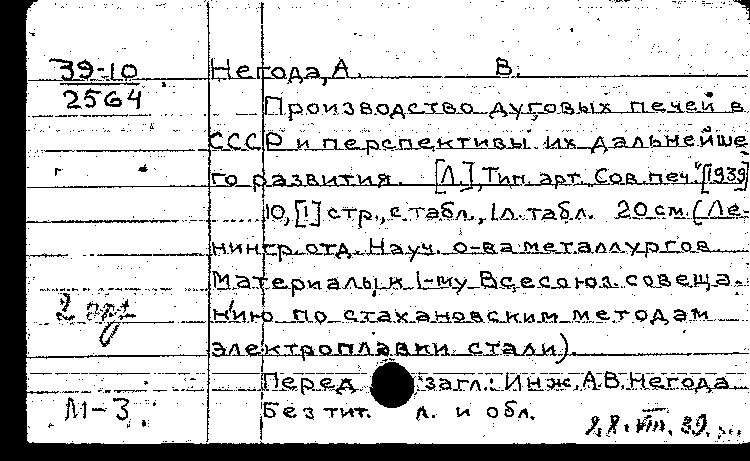 39-10
2564
Негода, А. В.
Производство дуговых печей в
СССР и перспективы их дальнейше
го развития. [Л.], Тип. арт. „Сов. печ." [1939]
10, [1] стр., с табл., 1 л. табл. 20 см. (Ле-
нингр. отд. Науч. о-ва металлургов
Материалы к 1-му Всесоюз. совеща-
нию по стахановским методам
электроплавки стали).
Перед загл.: Инж. А.В. Негода
Без тит. л. и обл.
2 арт
М-3
28.VIII.39.